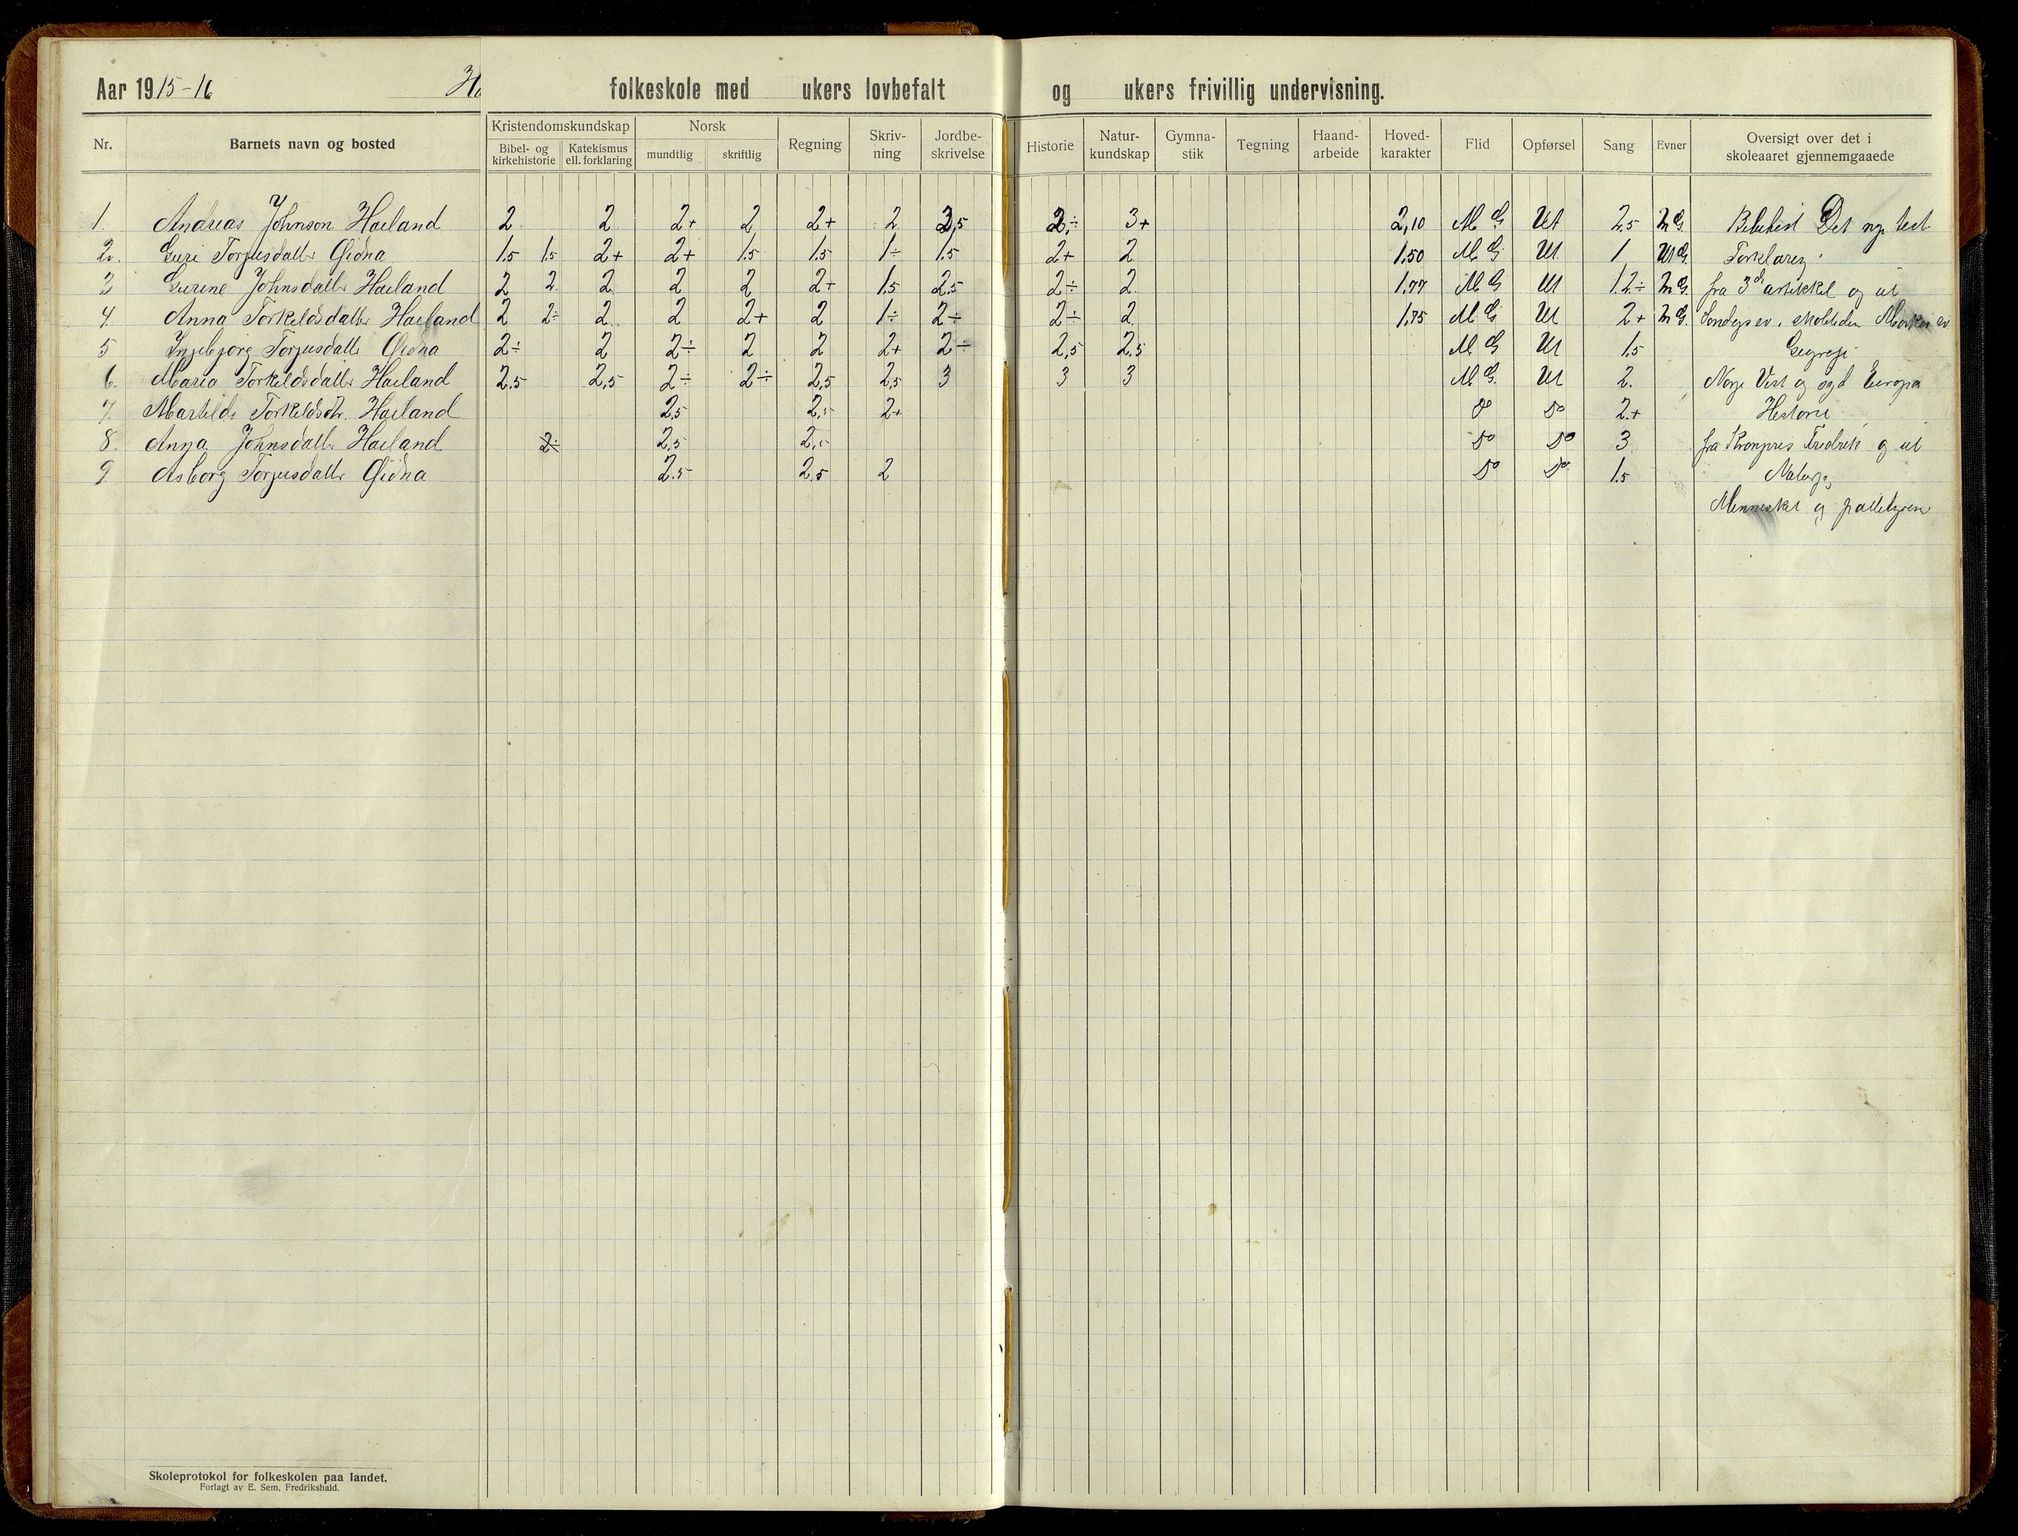 Aar 1915-16 folkeskole med ukers lovbefalt og ukers frivillig undervisning.
Nr. Barnets navn og bosted Kristendomskundskap Bibel- og kirkehistorie Katekismus ell. forklaring Norsk mundtlig skriftlig Regning Skriv-ning Jordbe-skrivelse Historie Natur-kundskap Gymna-stik Tegning Haand-arbeide Hoved-karakter Flid Opførsel Sang Evner Oversigt over det i skoleaaret gjennemgaaede
1. Andreas Johnson Haeland 2 2 2+ 2 2+ 2 2,5 2÷ 3+ 2,10 M G Ut 2,5 M G. Bibelhist Det nye test.
2. Guri Torjusdatter Øidna 1.5 1.5 2+ 2+ 1.5 1.5 1÷ 1.5 2+ 2 1.50 M G Ut 1 Ut G. Forklaring
3 Gurine Johnsdatt. Haeland 2 2. 2 2 2 2+ 1.5 2.5 2÷ 2. 1.77 M G Ut 1.2÷ M G. fra 3die artikkel og ut
4. Anna Torkeldsdatter Haeland 2 2÷ 2 2 2+ 2 1÷ 2÷ 2÷ 2. 1.75 M G Ut 2+ M G.
5 Ingebjorg Torjusdatt Øidna 2÷ 2 2÷ 2 2 2+ 2÷ 2,5 2,5 M G Ut 1.5
6. Maria Torkeldsdatt. Haeland 2.5 2,5 2÷ 2÷ 2,5 2,5 3 3 3 M G. Ut 2. Norge Vest og syd Europa
7. Torkeldsdtr. Haeland 2,5 2,5 2+ Do Do 2.+ Historie
8. Anna Johnsdatt. Haeland 2÷ 2,5 2,5 Do Do 3 fra Kronpris Fredrik og ut
9. Asborg Torjusdatt. Øidna 2.5 2,5 2 Do Do. 1.5
Mennesket og pattedyrene
Skoleprotokol for folkeskolen paa landet.
Forlagt av E. Sem, Fredrikshald.